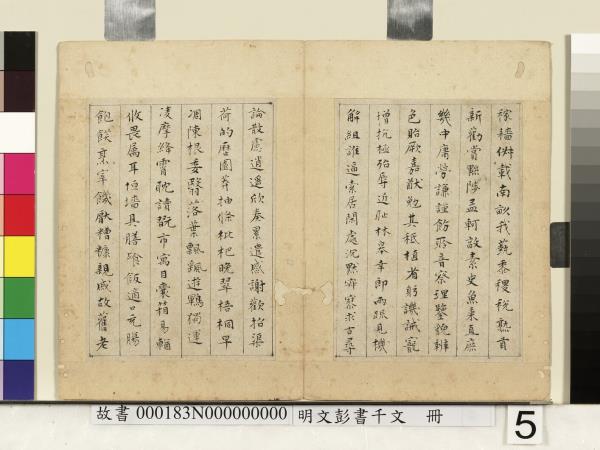 稼穡俶載南畝我藝黍稷稅熟貢
新勸賞黜陟孟軻敦素史魚秉直庶
幾中庸勞謙謹勅聆音察理鑒貌辨
色貽厥嘉猷勉其祗植省躬譏誡寵
增抗極殆辱近恥林皋幸即兩疏見機
解組誰逼索居閑處沉默寂寥求古尋
論散慮逍遙欣奏累遣慼謝歡招渠
荷的歷園莽抽條枇杷晚翠梧桐早
凋陳根委翳落葉飄颻遊鵾獨運
凌摩絳霄耽讀翫市寓目囊箱易輶
攸畏屬耳垣墻具膳飡飯適口充腸
飽飫烹宰饑厭糟糠親戚故舊老
故書 000183N000000000 明文彭書千文 冊
5